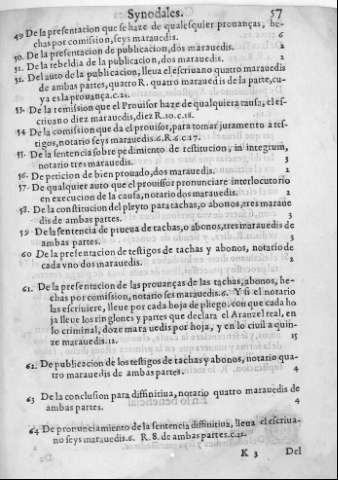 Synodales. 57
49 De la presentacion que se haze de qualesquier prouanças, he-
chas por comission, seys marauedis. 6
50. De la presentacion de publicacion, dos marauedis. 2
51. De la rebeldia de la publicacion, dos marauedis. 2
52. Del auto de la publicacion, lleua el escriuano quatro marauedis
de ambas partes, quatro R. quatro marauedis de la parte, cu-
ya es la prouança. c. 21.
53. De la remission que el Prouisor haze de qualquiera causa, el es-
criuano diez marauedis, diez R. 10. c. 18.
54 De la comission que da el prouisor, para tomar juramento a tes-
tigos, notario seys marauedis. 6. R. 6. c. 17.
55. De la sentencia sobre pedimiento de restitucion, in integrum,
notario tres marauedis. 3
56. De peticion de bien prouado, dos marauedis. 2
57. De qualquier auto que el prouissor pronunciare interlocutorio
en execucion de la causa, notario dos marauedis. 2
58. De la constitucion del pleyto para tachas, o abonos, tres maraue
dis de ambas partes. 3
59 De la sentencia de prueua de tachas, o abonos, tres marauedis de
ambas partes. 3
60 De la presentacion de testigos de tachas y abonos, notario de
cada vno dos marauedis. 2
61. De la presentacion de las prouanças de las tachas, abonos, he-
chas por comission, notario ses marauedis. 6. Y si el notario
las escriuiere, lleue por cada hoja de pliego. con que cada ho
ja lleue los ringlones y partes que declara el Aranzel real, en
lo criminal, doze marauedis por hoja, y en lo ciuil a quin-
ze marauedis. 12. 15
62. De publicacion de los testigos de tachas y abonos, notario qua-
tro marauedis de ambas partes. 4
63 De la conclusion para diffinitiua, notario quatro marauedis de
ambas partes. 4
64 De pronunciamiento de la sentencia diffinitiua, lleua el escriua-
no seys marauedis. 6. R. 8. de ambas partes. c. 21.
K 3 Del